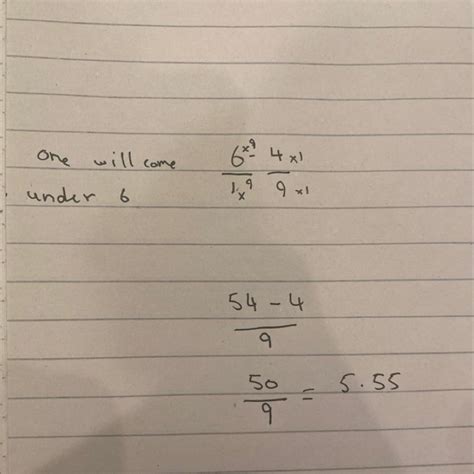 one will come
under 6
6×9 - 4×1
1×9 9×1
54 - 4
9
50
9 = 5.55